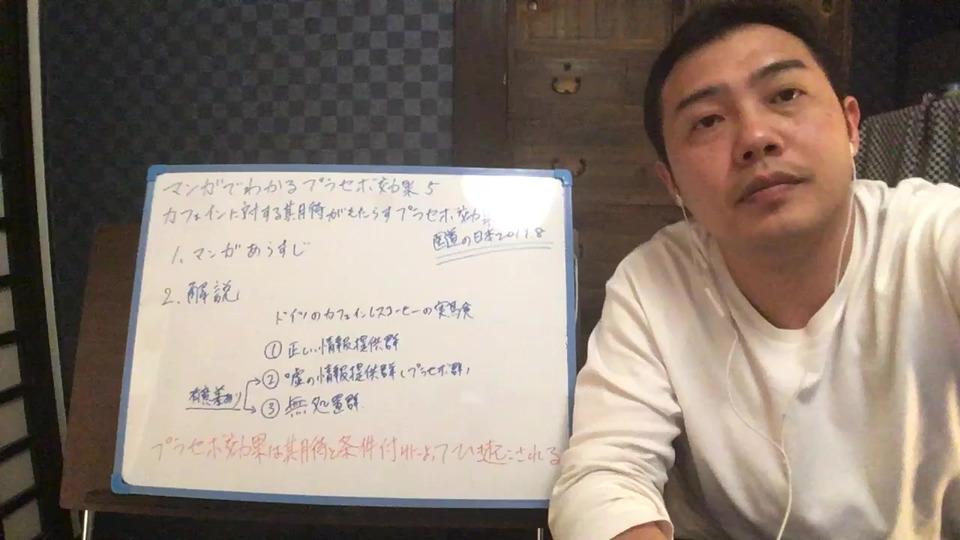 マンガでわかるプラセボ効果5
カフェインに対する期待がもたらすプラセボ効
医道の日本2019 8
1. マンガあらすじ
2. 解説
ドイツのカフェインレスコーヒーの実験
① 正しい情報提供群
② 嘘の情報提供群(プラセボ群)
有意差あり
③ 無処置群
プラセボ効果は期待と条件付けによってひき起こされる